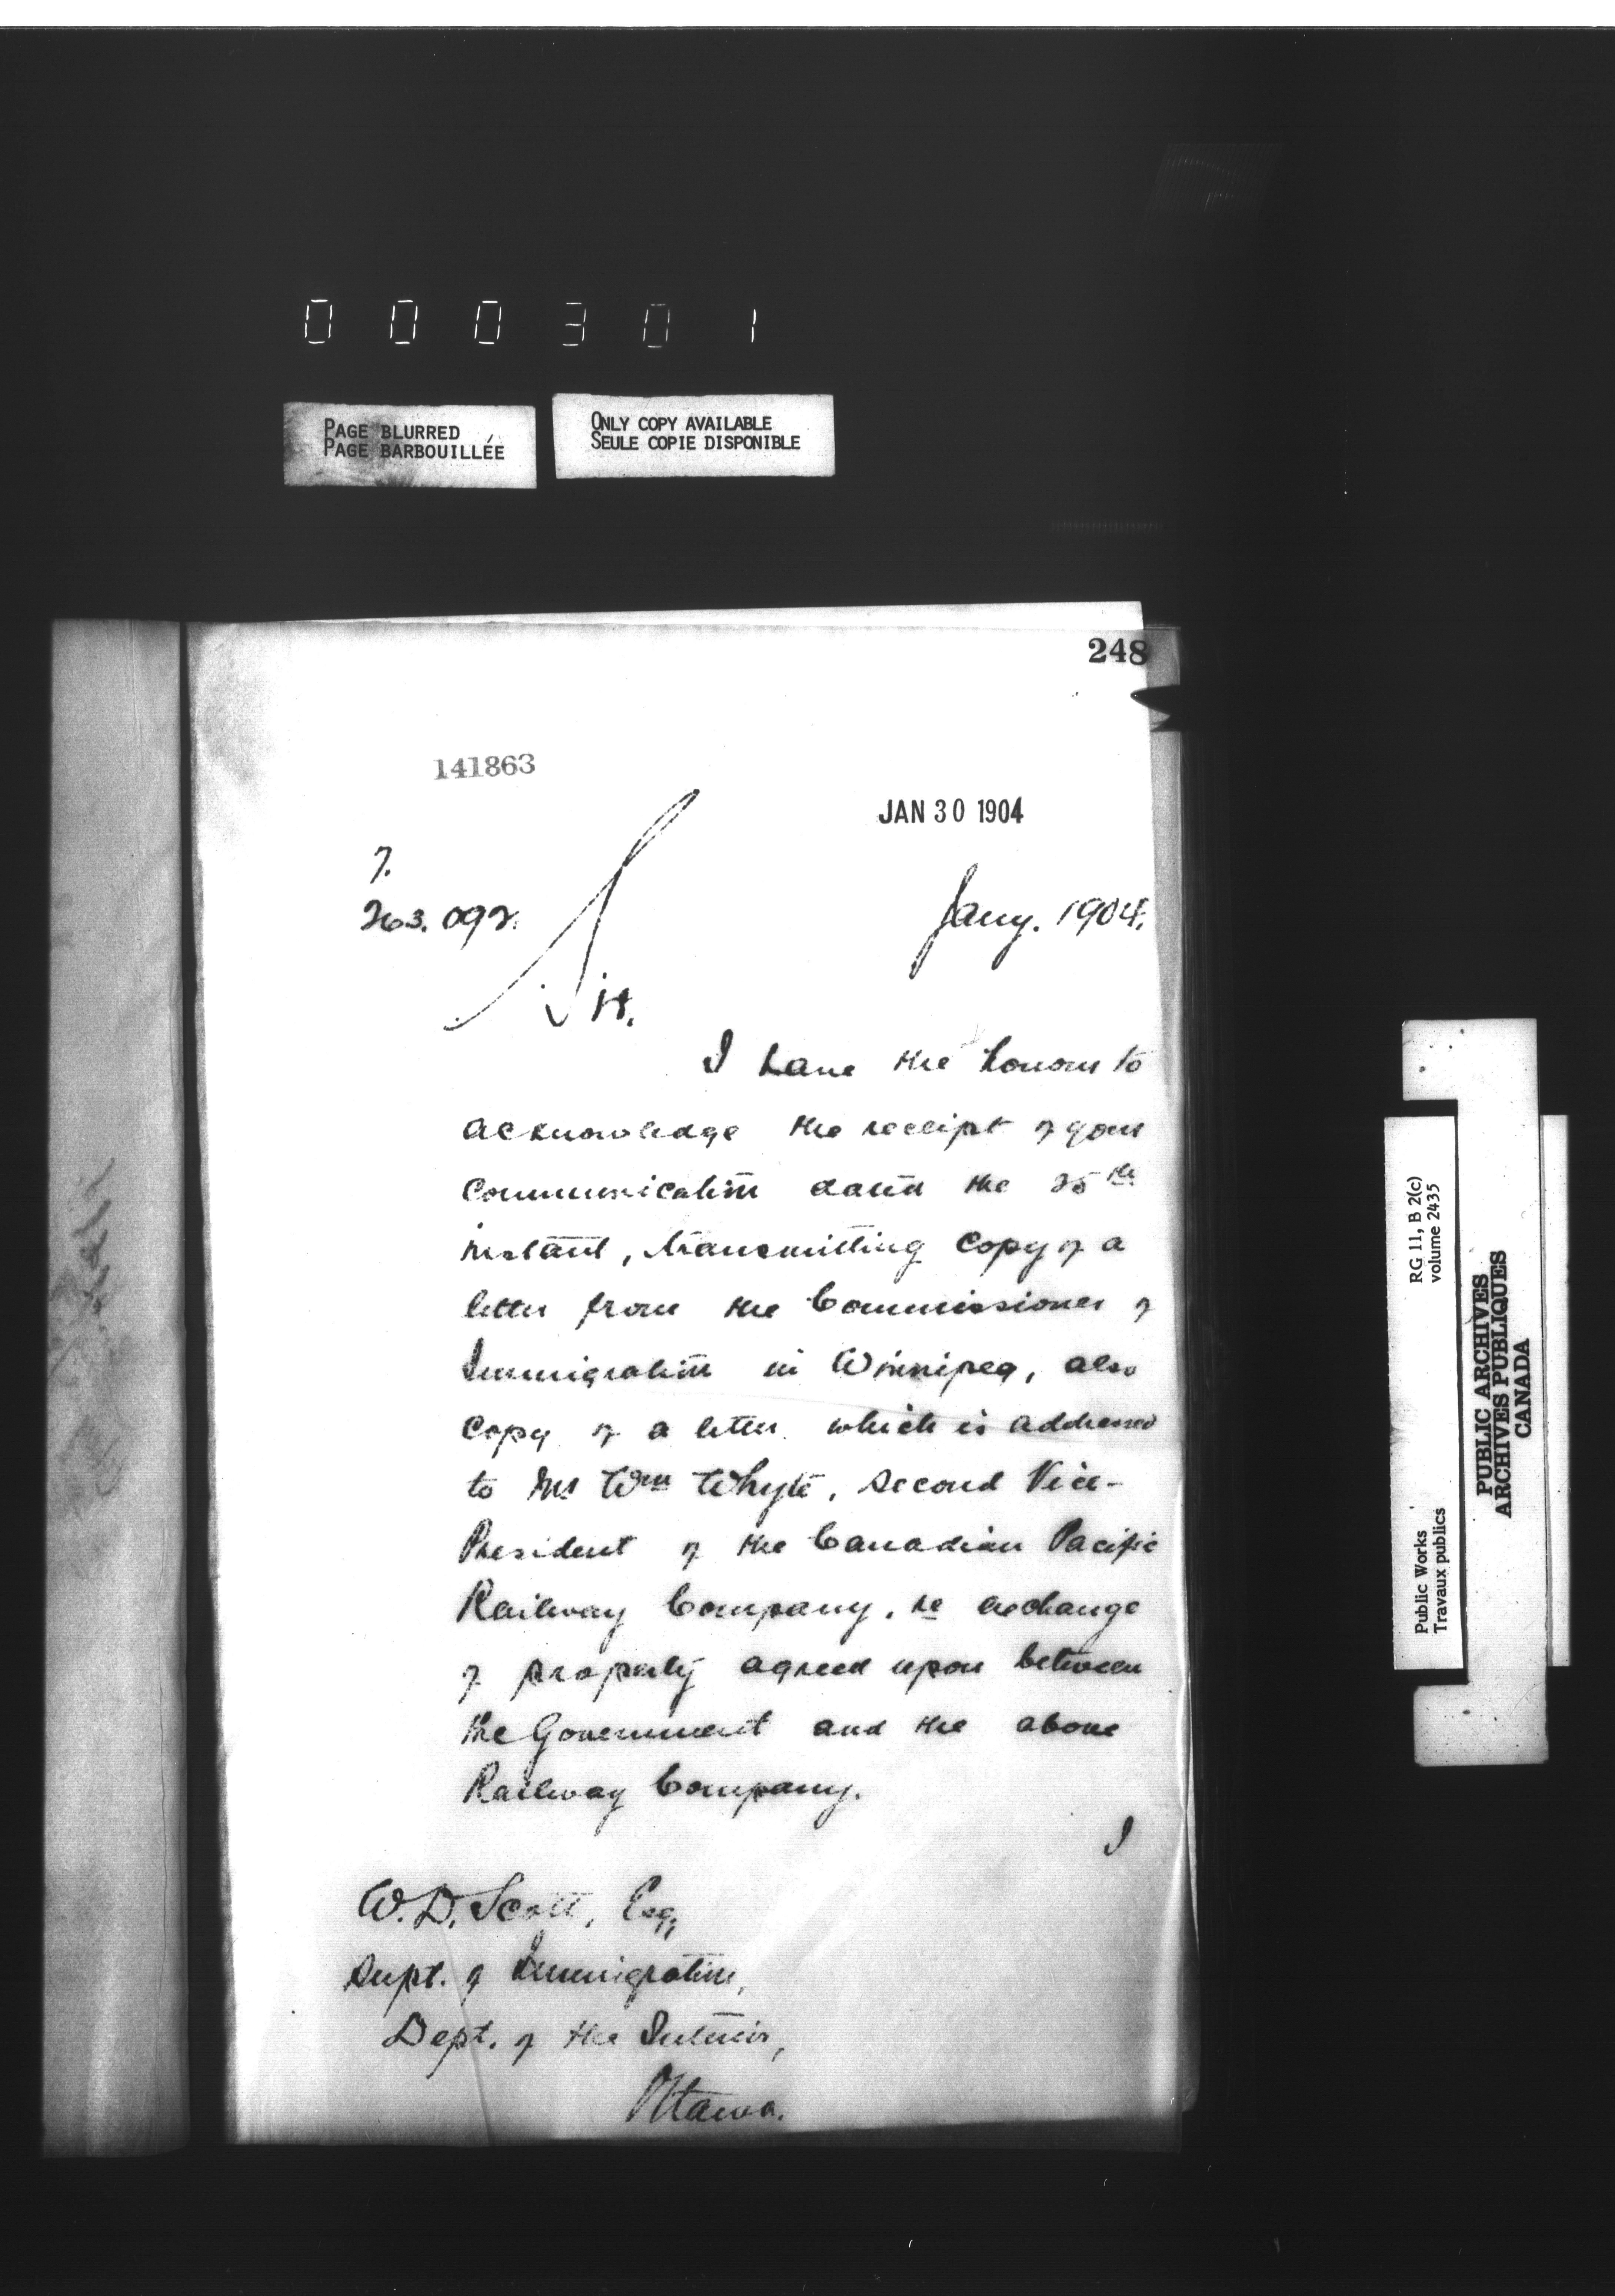 000301
PAGE BLURRED
PAGE BARBOUILLÉE
ONLY COPY AVAILABLE
SEULE COPIE DISPONIBLE
248
141863
JAN 30 1904
7.
263.092.
Jany. 1904.
Sir.
I have the honour to
acknowledge the receipt of your
communication dated the 25th
instant, transmitting copy of a
letter from the Commissioner of
Immigration in Winnipeg, also
copy of a letter which is addressed
to Mr Wm Whyte, Second Vice-
President of the Canadian Pacific
Railway Company, re exchange
of property agreed upon between
the Government and the above
Railway Company.
I
W. D. Scott, Esq,
Supt. of Immigration,
Dept. of the Interior,
Ottawa.
RG 11, B 2(c)
volume 2435
Public Works
Travaux publics
PUBLIC ARCHIVES
ARCHIVES PUBLIQUES
CANADA